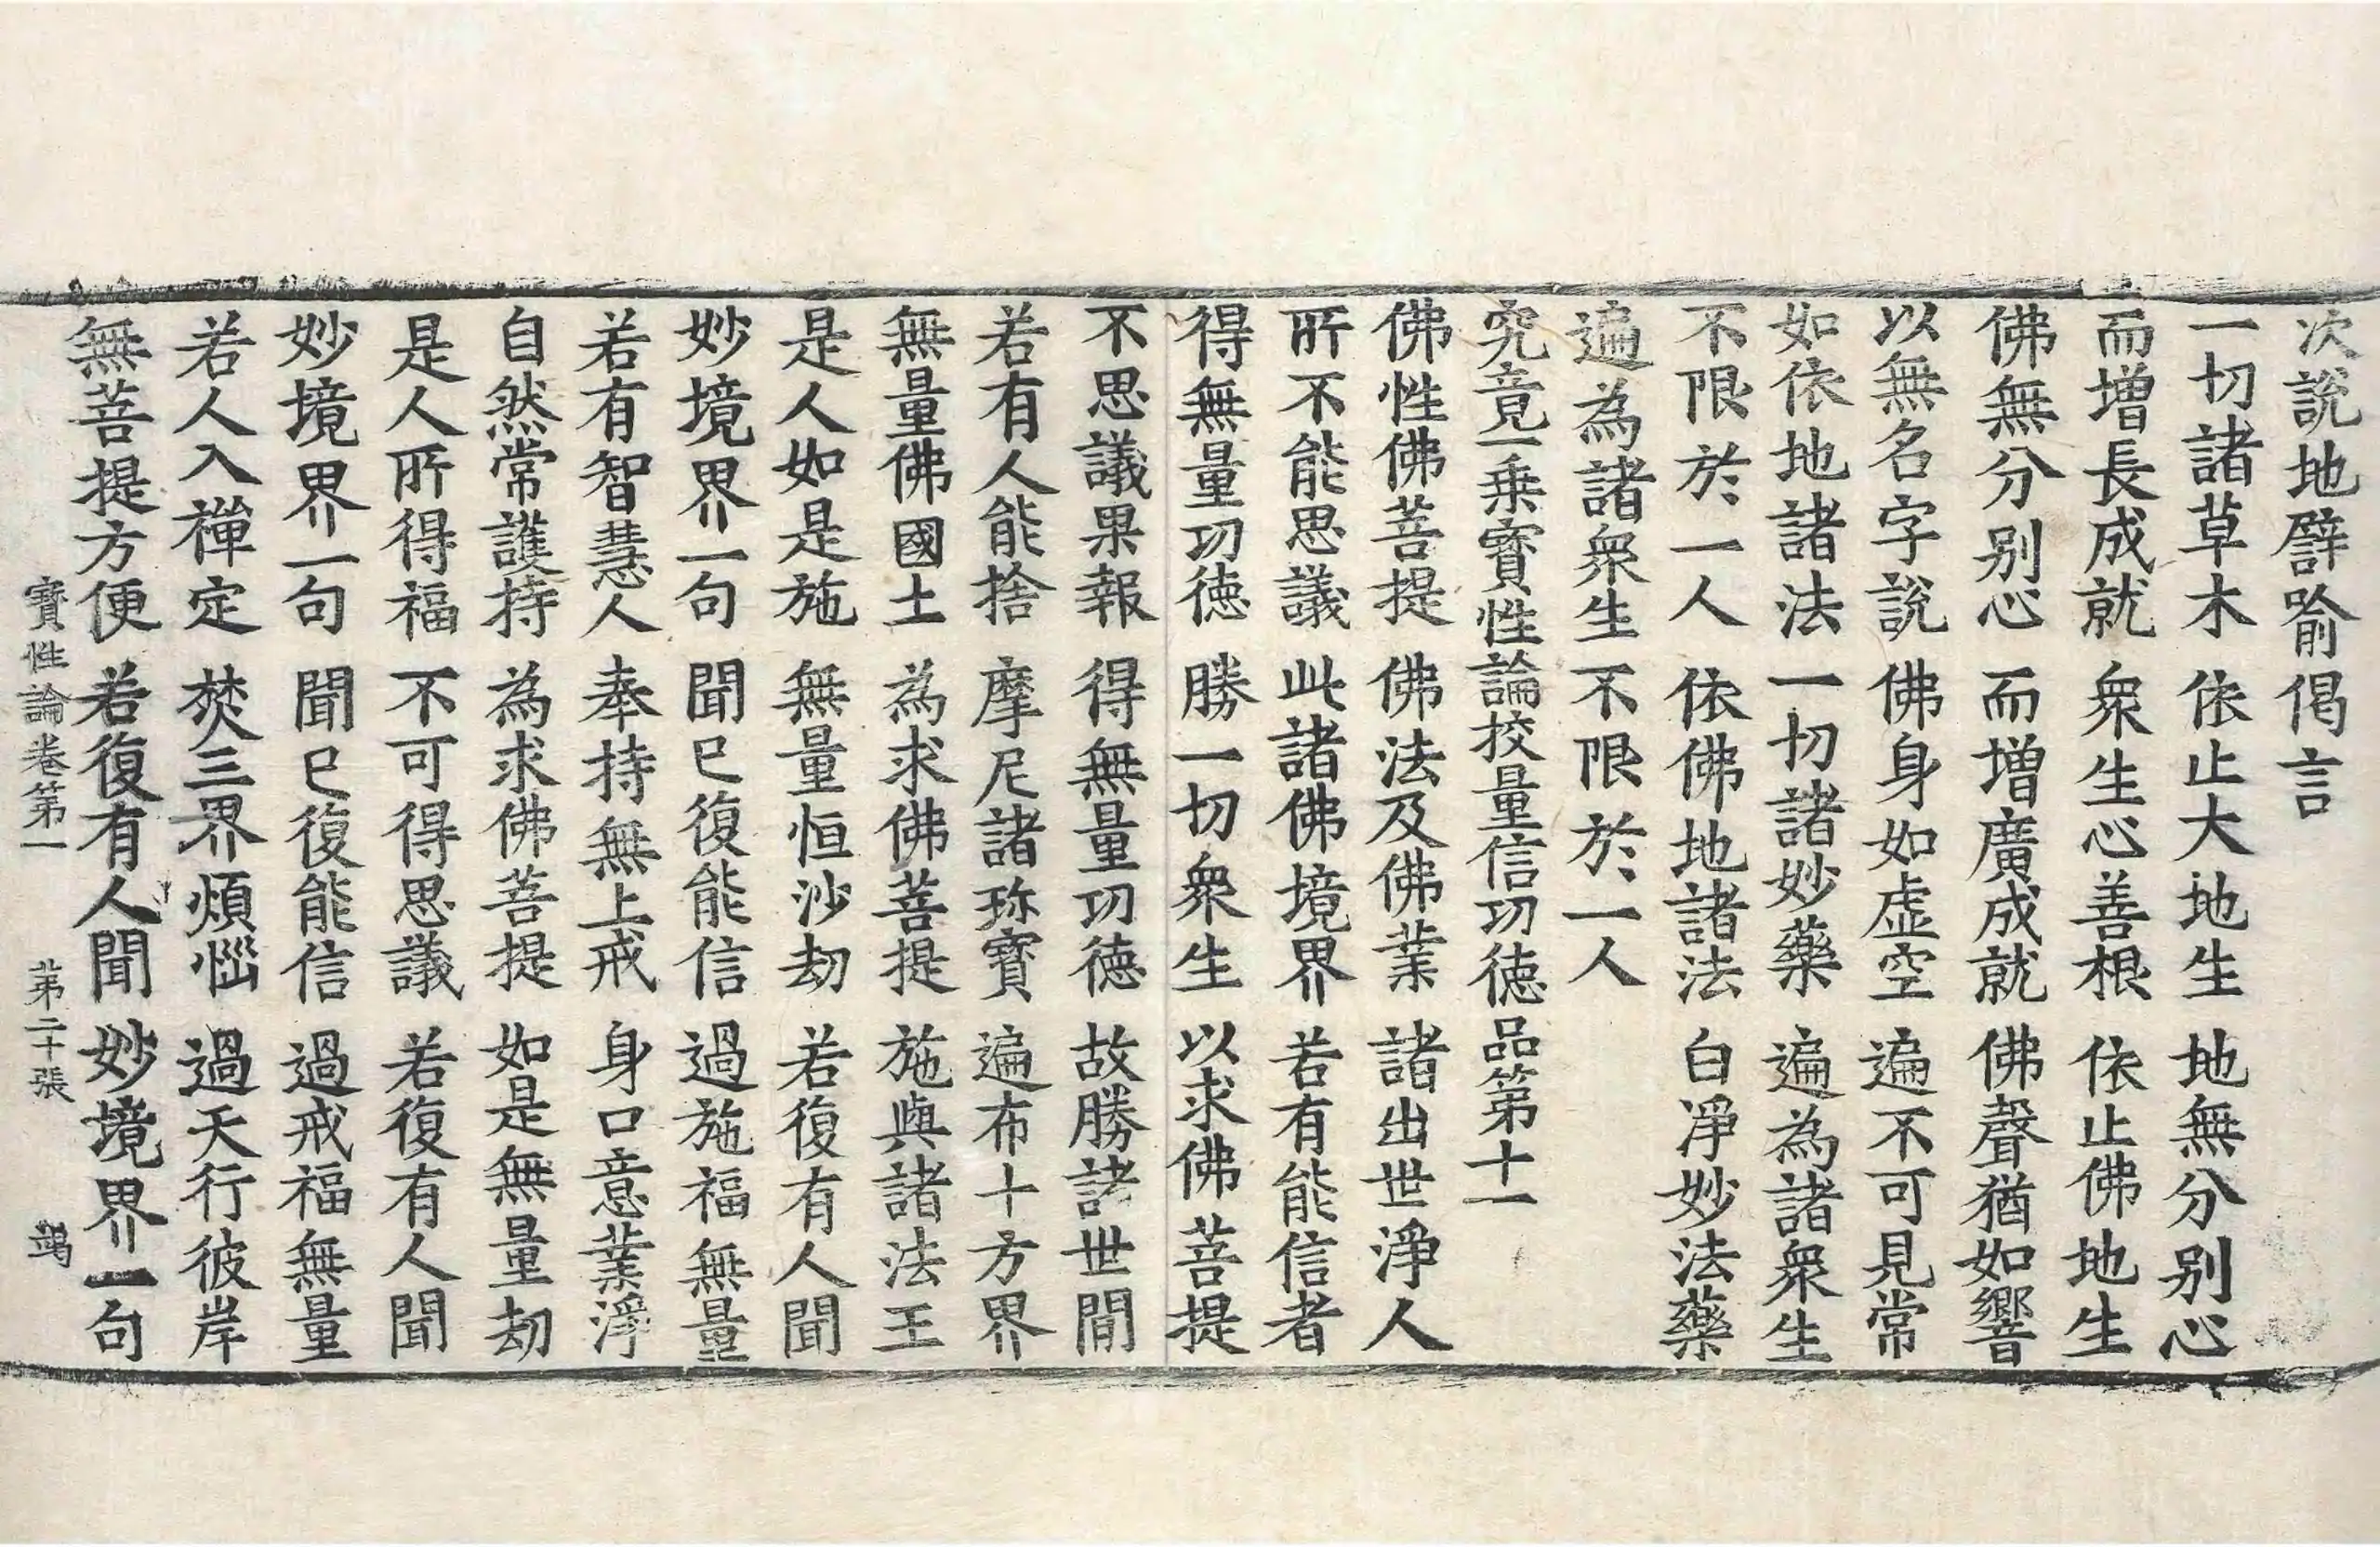 次說地譬喻偈言
一切諸草木 依止大地生 地無分別心
而增長成就 衆生心善根 依止佛地生
佛無分別心 而增廣成就 佛聲猶如響
以無名字說 佛身如虛空 遍不可見常
如依地諸法 一切諸妙藥 遍為諸衆生
不限於一人 依佛地諸法 白淨妙法藥
遍為諸衆生 不限於一人
究竟一乘寶性論校量信功德品第十一
佛性佛菩提 佛法及佛業 諸出世淨人
所不能思議 此諸佛境界 若有能信者
得無量功德 勝一切衆生 以求佛菩提
不思議果報 得無量功德 故勝諸世間
若有人能捨 摩尼諸珎寶 遍布十方界
無量佛國土 為求佛菩提 施與諸法王
是人如是施 無量恒沙劫 若復有人聞
妙境界一句 聞已復能信 過施福無量
若有智慧人 奉持無上戒 身口意業淨
自然常護持 為求佛菩提 如是無量劫
是人所得福 不可得思議 若復有人聞
妙境界一句 聞已復能信 過戒福無量
若人入禪定 焚三界煩惱 過天行彼岸
無菩提方便 若復有人聞 妙境界一句
寶性論卷第一 第二十張 竭